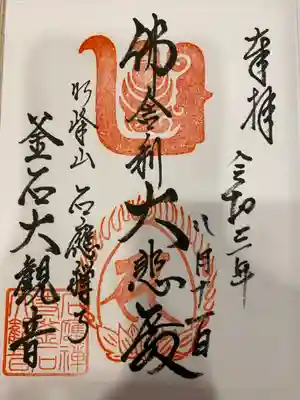 奉拝
令和三年
八月十一日
佛舎利大悲殿
明峰山石應禅寺
釜石大観音